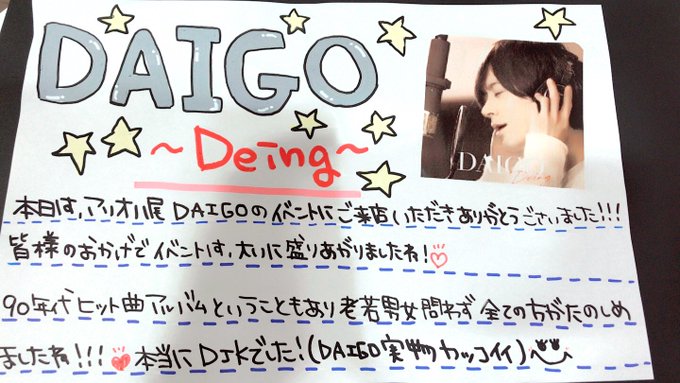 DAIGO
~Deing~
DAIGO
Deing
本日は、アリオ八尾DAIGOのイベントにご来店いただきありがとうございました!!!
皆様のおかげでイベントは、大いに盛りあがりましたね!♡
90年代ヒット曲アルバムということもあり老若男女問わず全ての方がたのしめ
ましたね!!!♥本当にDJKでした!(DAIGO実物カッコイイ)